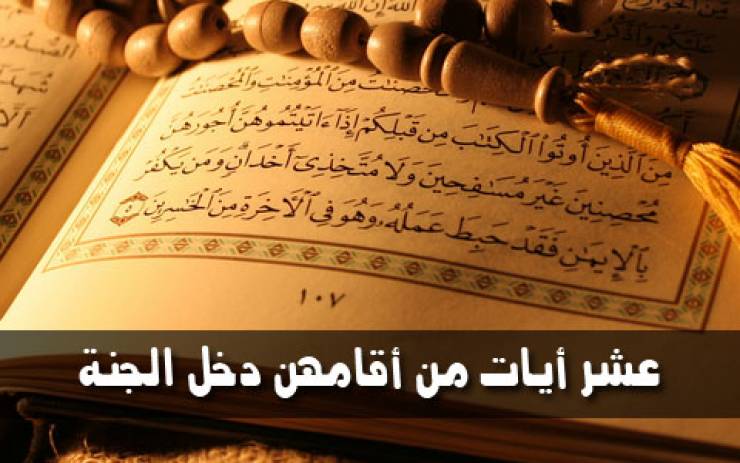 مِّنَ ٱلْجَوَارِحِ
ٱللَّهَ إِنَّ ٱللَّهَ
عَلَيْكُمْ وَٱذْكُرُوا۟
مِنَ ٱلْمُؤْمِنَٰتِ وَٱلْمُحْصَنَٰتُ
مِنَ ٱلَّذِينَ أُوتُوا۟ ٱلْكِتَٰبَ مِن قَبْلِكُمْ إِذَآ ءَاتَيْتُمُوهُنَّ أُجُورَهُنَّ
مُحْصِنِينَ غَيْرَ مُسَٰفِحِينَ وَلَا مُتَّخِذِىٓ أَخْدَانٍ وَمَن يَكْفُرْ
بِٱلْإِيمَٰنِ فَقَدْ حَبِطَ عَمَلُهُۥ وَهُوَ فِى ٱلْءَاخِرَةِ مِنَ ٱلْخَٰسِرِينَ ٥
١٠٧
عشر أيات من أقامهن دخل الجنة